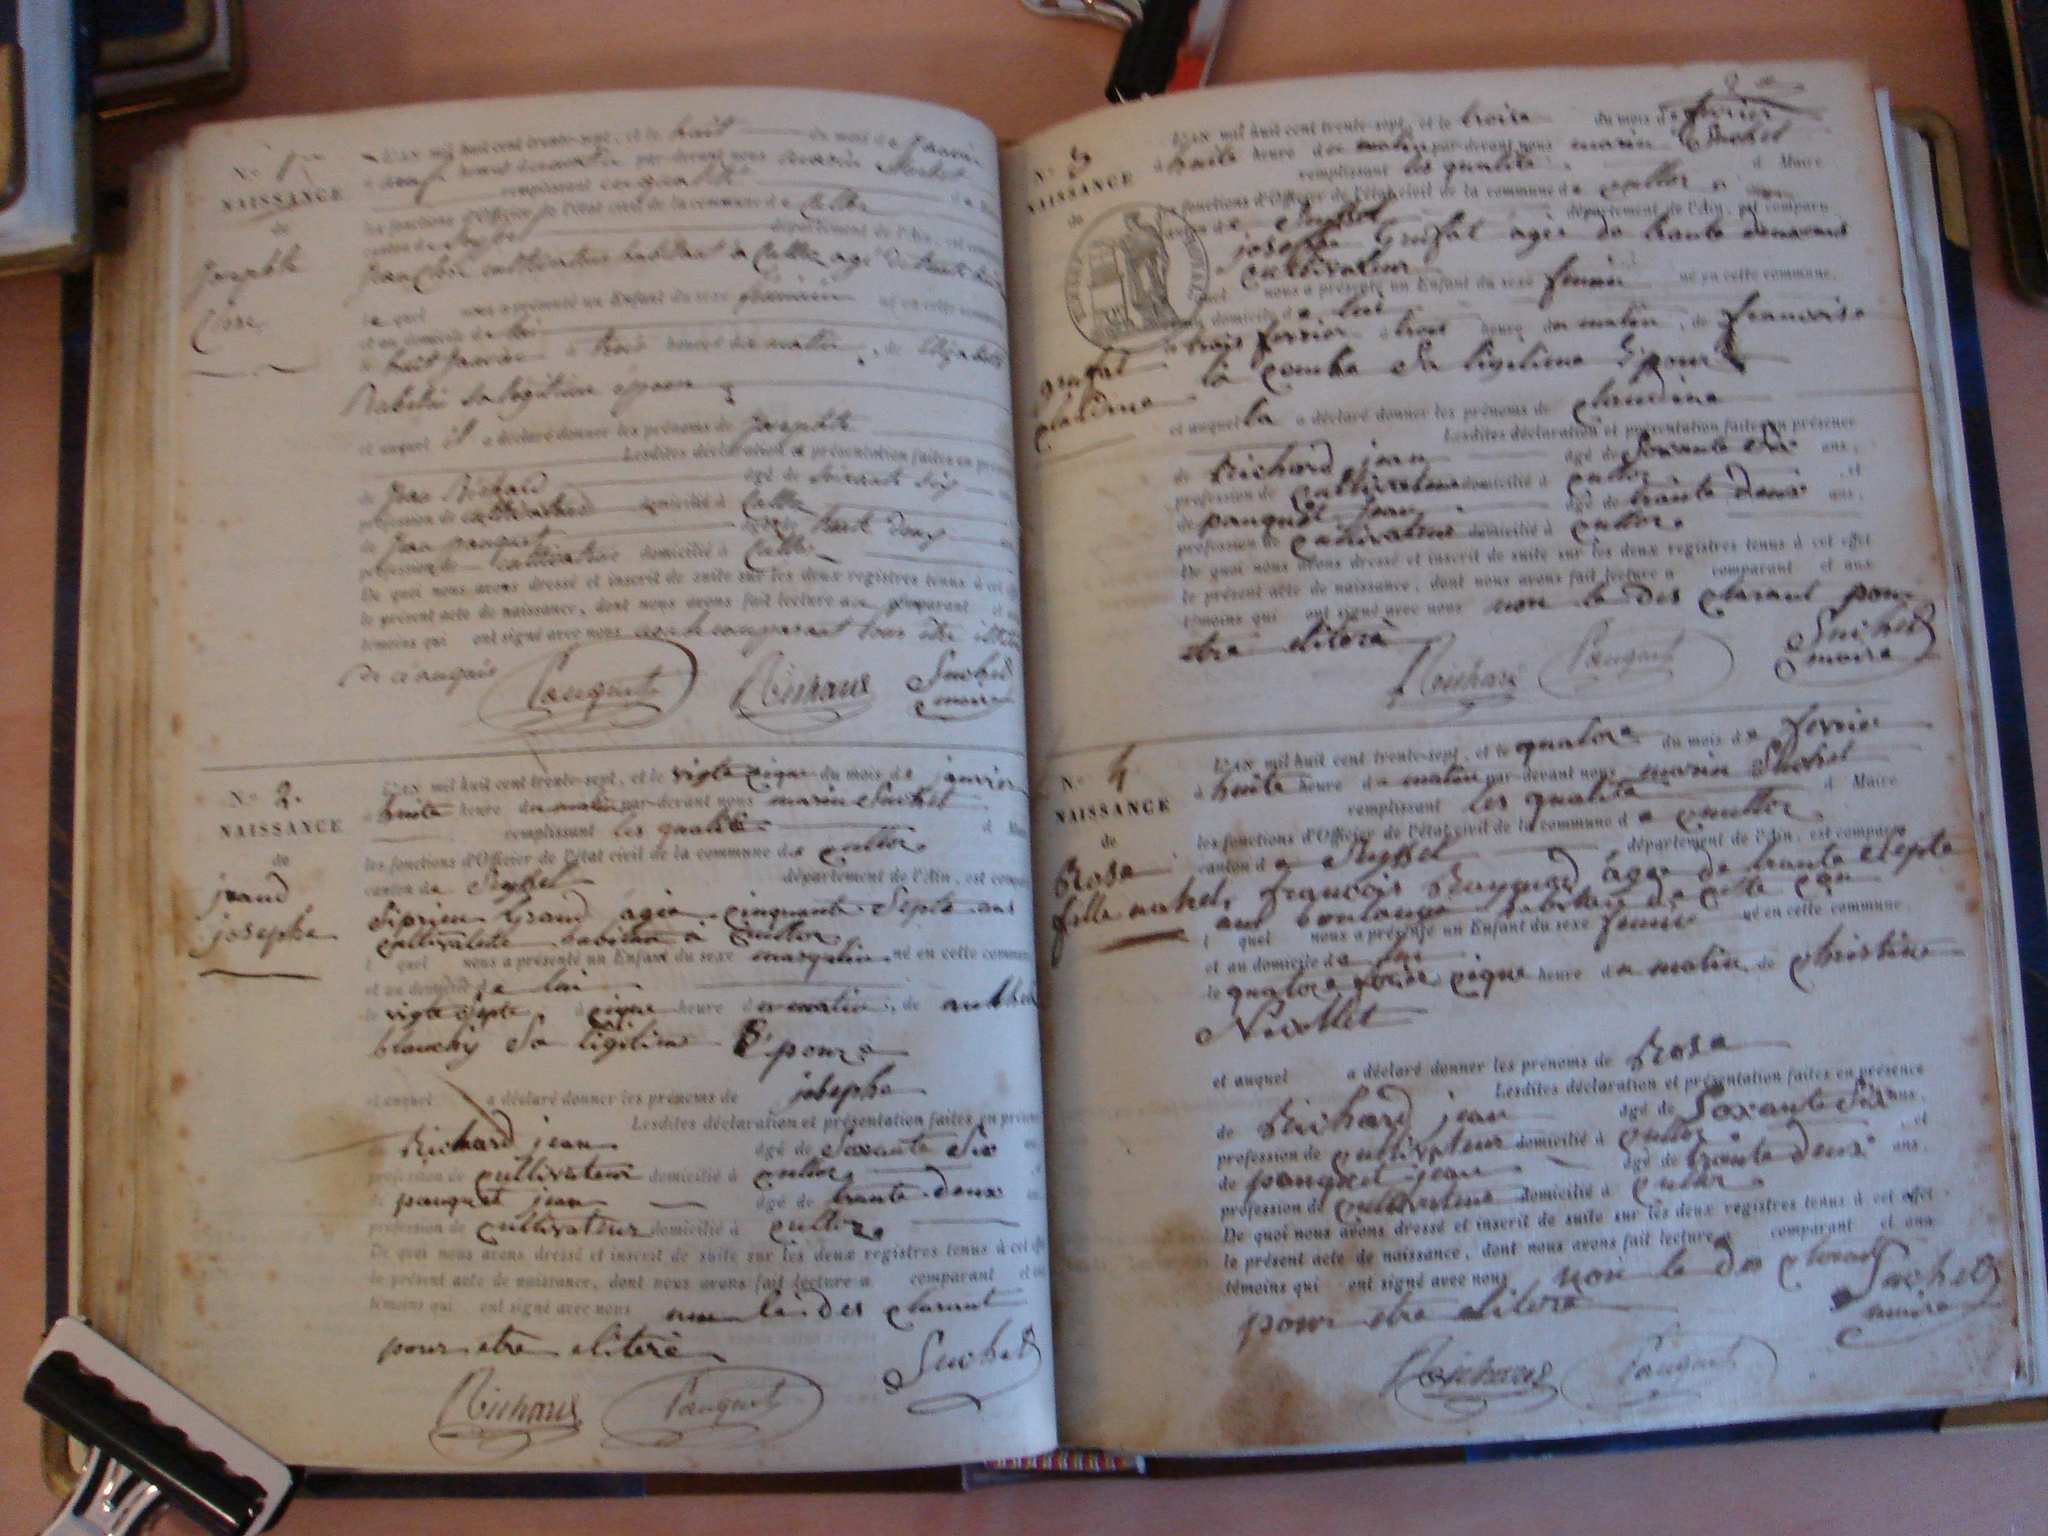 N.o 1
NAISSANCE
de
Josephte
Clere
L'AN mil huit cent trente-sept, et le huit du mois de Janvier
à neuf heures du matin par-devant nous marin Suchet
remplissant
les fonctions d'Officier de l'état civil de la commune de Culloz
canton de Seyssel département de l'Ain, est
cultivateur habitant à Culloz agé de trente huit
le quel nous a présenté un Enfant du sexe feminin né en cette commune
et au domicile de lui
le huit Janvier à trois heures du matin, de Elizabeth
sa legitime epouse
et auquel il a déclaré donner les prénoms de Josephte
Lesdites déclaration et présentation faites en
de Jean Richard âgé de soixante six
profession de cultivateur domicilié à Culloz
de Jean pauquet âgé de trente deux
profession de cultivateur domicilié à Culloz
De quoi nous avons dressé et inscrit de suite sur les deux registres tenus à cet effet
le présent acte de naissance, dont nous avons fait lecture au comparant et
témoins qui ont signé avec nous non le comparant pour être
De ce enquis
Pauquet Richard Suchet
maire
N.o 2.
NAISSANCE
de
jrand
josephe
L'AN mil huit cent trente-sept, et le vigte cique du mois de janvier
à huite heure du matin par-devant nous marin Suchet
remplissant les qualité
les fonctions d'Officier de l'état civil de la commune de cultoz
canton de Seyssel département de l'Ain, est
Siprien Grand agée cinquante septe ans
cultivateur habitan a cultoz
l quel nous a présenté un Enfant du sexe masqulin né en cette commune
et au domicile de lui
le vigte septe, à cique heure du matin, de
blanchy Sa ligitime Epouze
et auquel a déclaré donner les prénoms de josephe
Lesdites déclaration et présentation faites en
de Richard jean âgé de Soxante Six
profession de cultivateur domicilié à cultoz
de pauquet jean âgé de trante deux
profession de cultivateur domicilié à cultoz
De quoi nous avons dressé et inscrit de suite sur les deux registres tenus à cet
le présent acte de naissance, dont nous avons fait lecture a comparant et
témoins qui ont signé avec nous non le des clarant
pour etre elitere
Suchet
Richard Pauquet
N.o 3
NAISSANCE
de
grufat
claudine
L'AN mil huit cent trente-sept, et le troire du mois de fevrier
à huite heure du matin par-devant nous marin Suchet
remplissant les qualité d Maire
les fonctions d'Officier de l'état civil de la commune de cultoz
canton de Seyssel département de l'Ain, est comparu
josephe Grufat agée de trante
cultivateur
quel nous a présenté un Enfant du sexe feminin né en cette commune,
et au domicile de lui
le trois fevrier à trois heure du matin, de francoise
la combe Sa ligitime Epouze
et auquel la a déclaré donner les prénoms de claudine
Lesdites déclaration et présentation faites en présence
de Richard jean âgé de Soxante Six ans,
profession de cultivateur domicilié à cultoz et
de pauquet jean âgé de trante deux ans,
profession de cultivateur domicilié à cultoz
De quoi nous avons dressé et inscrit de suite sur les deux registres tenus à cet effet
le présent acte de naissance, dont nous avons fait lecture a comparant et aux
témoins qui ont signé avec nous non le des clarant pour
etre elitere
Suchet
maire
Richard Pauquet
N.o 4
NAISSANCE
de
Rose
fille
L'AN mil huit cent trente-sept, et le quatore du mois de fevrier
à huite heure du matin par-devant nous marin Suchet
remplissant les qualité d Maire
les fonctions d'Officier de l'état civil de la commune de cultoz
canton de Seyssel département de l'Ain, est comparu
francois Raymond agée de trante septe
ans boulange habitan de cette
l quel nous a présenté un Enfant du sexe né en cette commune
et au domicile de lui
le quatore fevrier cique heure du matin, de christine
Nivollet
et auquel a déclaré donner les prénoms de Rose
Lesdites déclaration et présentation faites en présence
de Richard jean âgé de Soxante Six ans,
profession de cultivateur domicilié à cultoz et
de pauquet jean âgé de trante deux ans,
profession de cultivateur domicilié à cultoz
De quoi nous avons dressé et inscrit de suite sur les deux registres tenus à cet effet
le présent acte de naissance, dont nous avons fait lecture a comparant et aux
témoins qui ont signé avec nous non le des clarant
pour etre elitere
Suchet
maire
Richard Pauquet